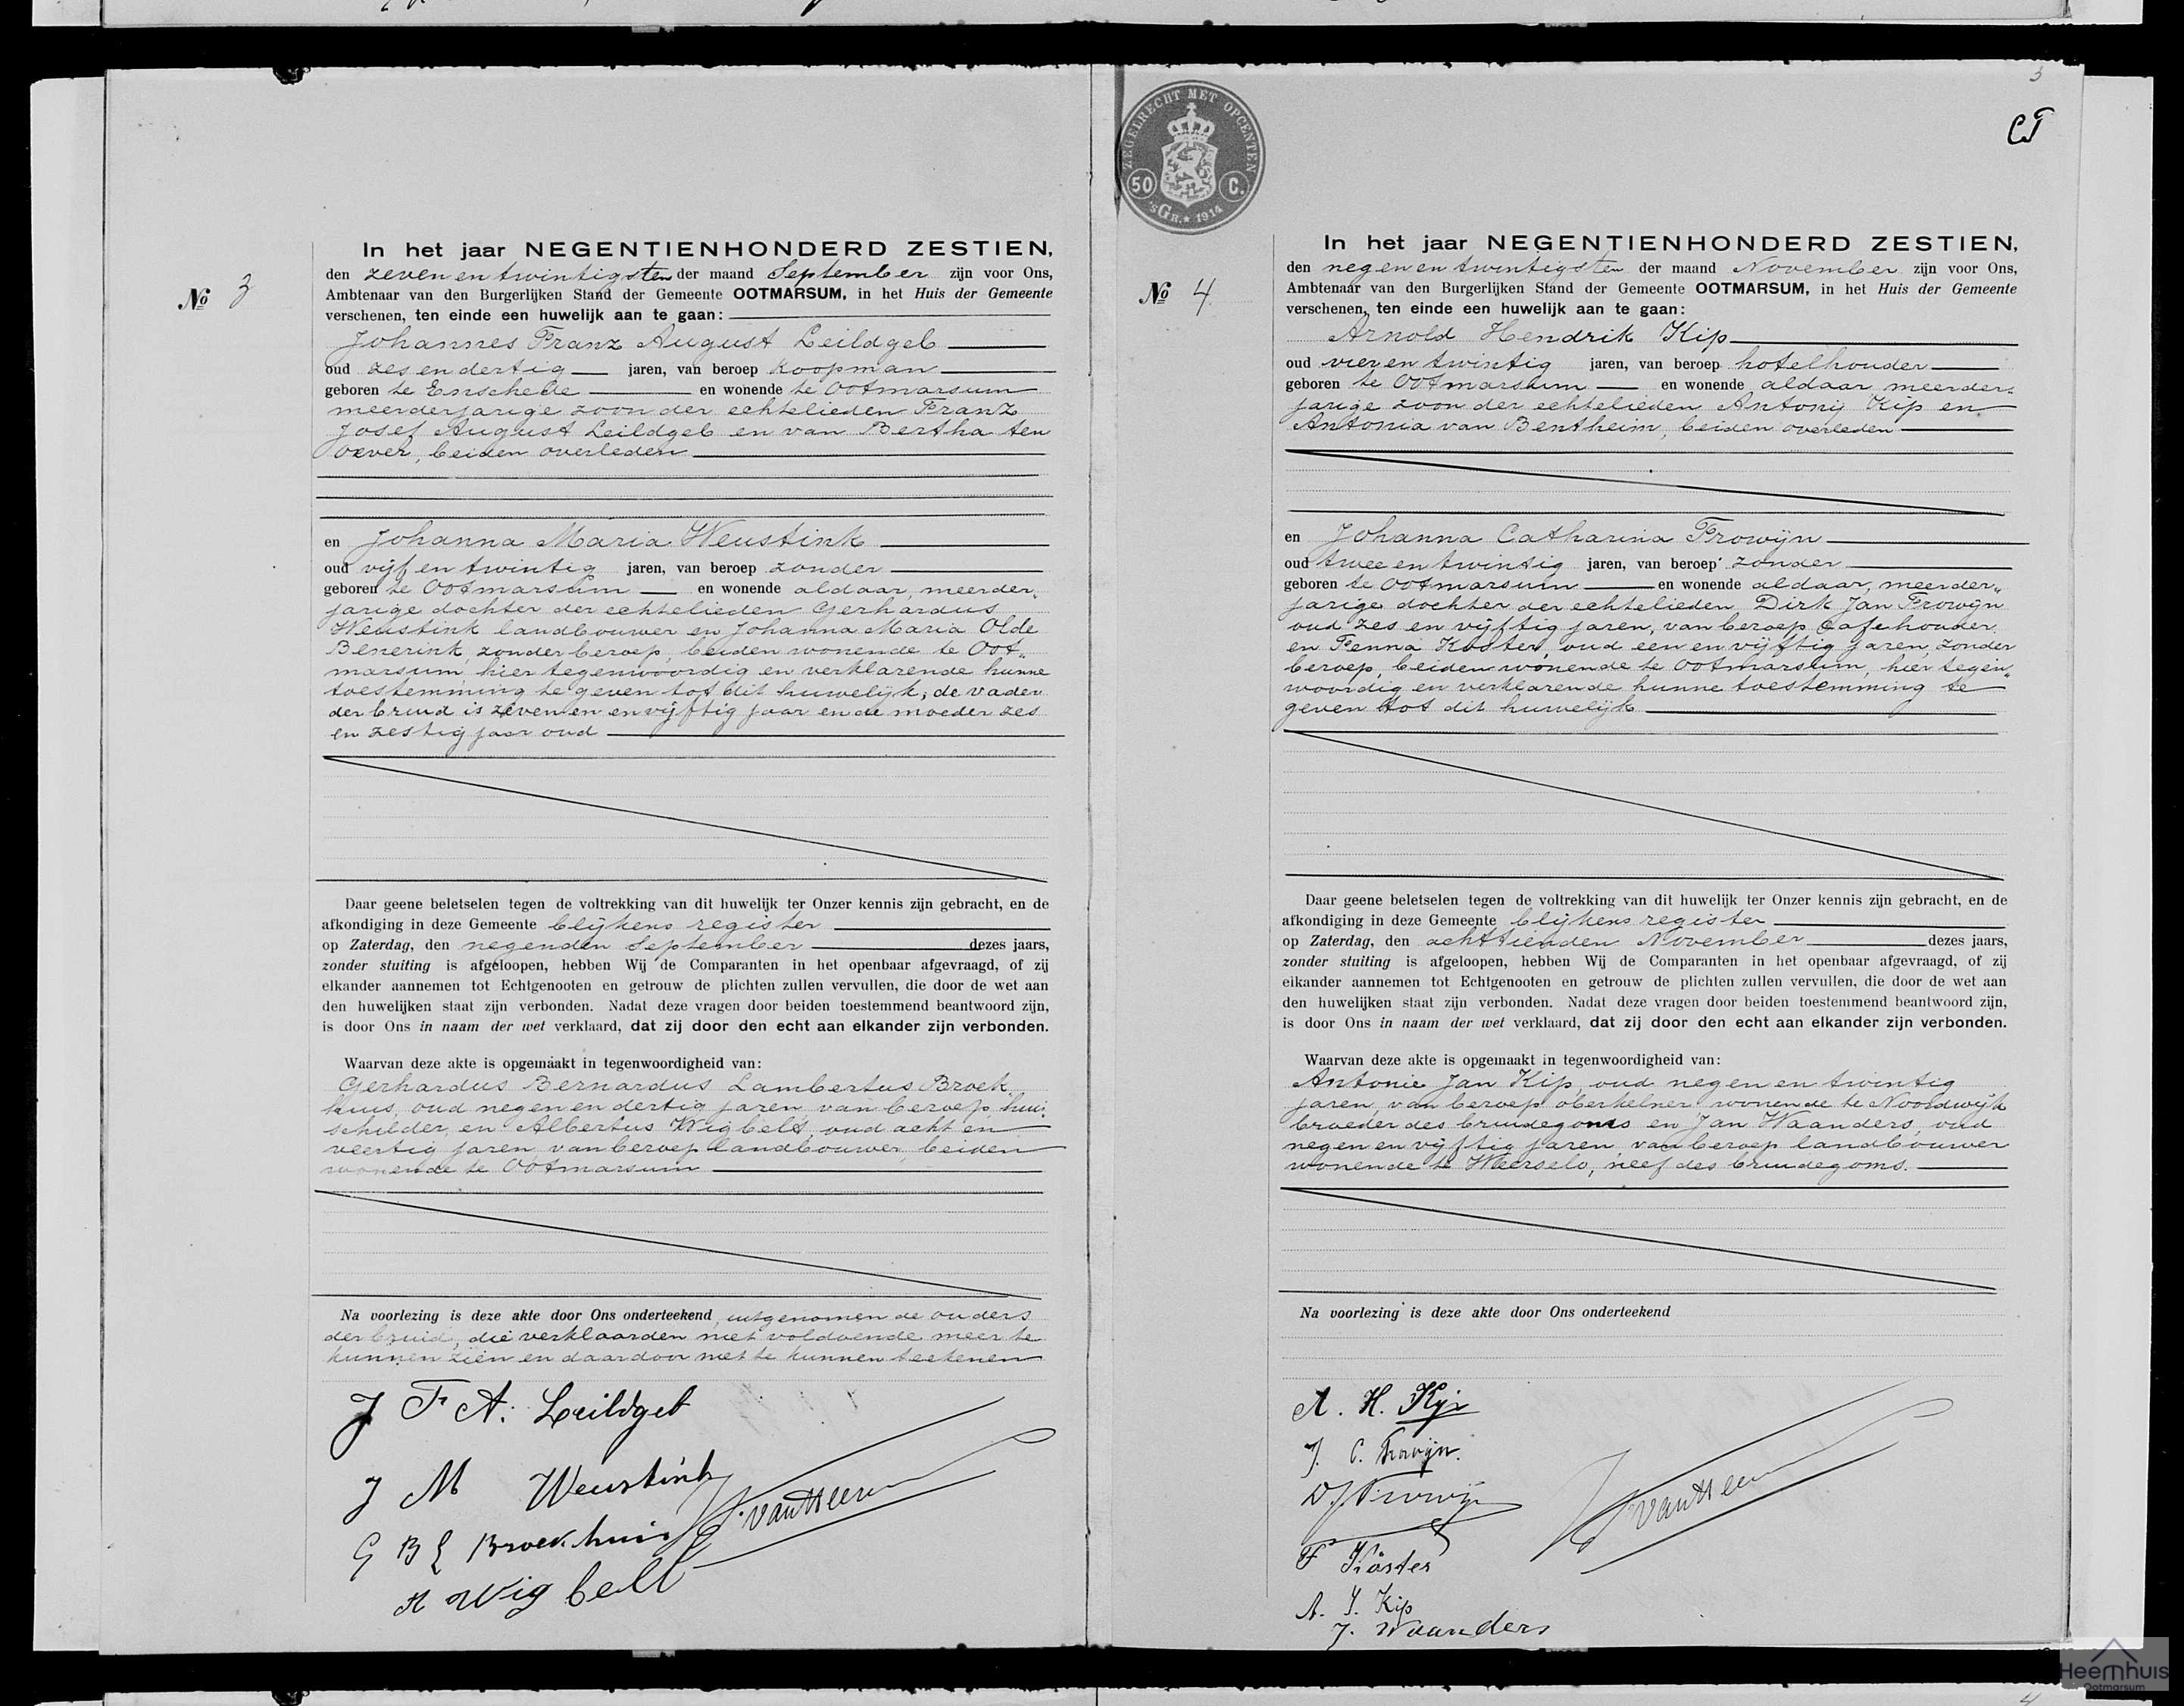 No 3
In het jaar NEGENTIENHONDERD ZESTIEN,
den zeven en twintigsten der maand September zijn voor Ons,
Ambtenaar van den Burgerlijken Stand der Gemeente OOTMARSUM, in het Huis der Gemeente
verschenen, ten einde een huwelijk aan te gaan:
Johannes Franz August Leildgeb
oud zes en dertig jaren, van beroep koopman
geboren te Enschede en wonende te Ootmarsum
meerderjarige zoon der echtelieden Franz
Josef August Leildgeb en van Bertha ten
Oever, beiden overleden
en Johanna Maria Weustink
oud vijf en twintig jaren, van beroep zonder
geboren te Ootmarsum en wonende aldaar, meerder-
jarige dochter der echtelieden Gerhardus
Weustink landbouwer en Johanna Maria Olde
Benerink, zonder beroep, beiden wonende te Oot„
marsum, hier tegenwoordig en verklarende hunne
toestemming te geven tot dit huwelijk; de vader
der bruid is zeven en vijftig jaar en de moeder zes
en zestig jaar oud
Daar geene beletselen tegen de voltrekking van dit huwelijk ter Onzer kennis zijn gebracht, en de
afkondiging in deze Gemeente blijkens register
op Zaterdag, den negenden September dezes jaars,
zonder stuiting is afgeloopen, hebben Wij de Comparanten in het openbaar afgevraagd, of zij
elkander aannemen tot Echtgenooten en getrouw de plichten zullen vervullen, die door de wet aan
den huwelijken staat zijn verbonden. Nadat deze vragen door beiden toestemmend beantwoord zijn,
is door Ons in naam der wet verklaard, dat zij door den echt aan elkander zijn verbonden.
Waarvan deze akte is opgemaakt in tegenwoordigheid van:
Gerhardus Bernardus Lambertus Broek
huis, oud negen en dertig jaren, van beroep, huis
schilder, en Albertus Wigbelt, oud acht en
veertig jaren, van beroep landbouwer, beiden
wonende te Ootmarsum
Na voorlezing is deze akte door Ons onderteekend, uitgenomen de ouders
der bruid, die verklaarden niet voldoende meer te
kunnen zien en daardoor niet te kunnen teekenen
J F A. Leildgeb
J M Weustink
G B L Broekhuis
A Wigbelt
3
CT
ZEGELRECHT MET OPCENTEN
50 C.
'sGR. 1914
No 4.
In het jaar NEGENTIENHONDERD ZESTIEN,
den negen en twintigsten der maand November zijn voor Ons,
Ambtenaar van den Burgerlijken Stand der Gemeente OOTMARSUM, in het Huis der Gemeente
verschenen, ten einde een huwelijk aan te gaan:
Arnold Hendrik Kip
oud vier en twintig jaren, van beroep hotelhouder
geboren te Ootmarsum en wonende aldaar meerder„
jarige zoon der echtelieden Antonij Kip en
Antonia van Bentheim, beiden overleden
en Johanna Catharina Frowijn
oud twee en twintig jaren, van beroep zonder
geboren te Ootmarsum en wonende aldaar, meerder„
jarige dochter der echtelieden Dirk Jan Frowijn
oud zes en vijftig jaren, van beroep Cafehouder
en Fenna Köster, oud een en vijftig jaren, zonder
beroep, beiden wonende te Ootmarsum, hier tegen„
woordig en verklarende hunne toestemming te
geven tot dit huwelijk
Daar geene beletselen tegen de voltrekking van dit huwelijk ter Onzer kennis zijn gebracht, en de
afkondiging in deze Gemeente blijkens register
op Zaterdag, den achttienden November dezes jaars,
zonder stuiting is afgeloopen, hebben Wij de Comparanten in het openbaar afgevraagd, of zij
elkander aannemen tot Echtgenooten en getrouw de plichten zullen vervullen, die door de wet aan
den huwelijken staat zijn verbonden. Nadat deze vragen door beiden toestemmend beantwoord zijn,
is door Ons in naam der wet verklaard, dat zij door den echt aan elkander zijn verbonden.
Waarvan deze akte is opgemaakt in tegenwoordigheid van:
Antonie Jan Kip, oud negen en twintig
jaren, van beroep oberkelner wonende te Noordwijk
broeder des bruidegoms en Jan Waanders, oud
negen en vijftig jaren, van beroep landbouwer
wonende te Weerselo, neef des bruidegoms.
Na voorlezing is deze akte door Ons onderteekend
A. H. Kip
J. C. Frowijn.
D J Frowijn
F Köster
A. J. Kip
J. Waanders
Heemhuis
Ootmarsum